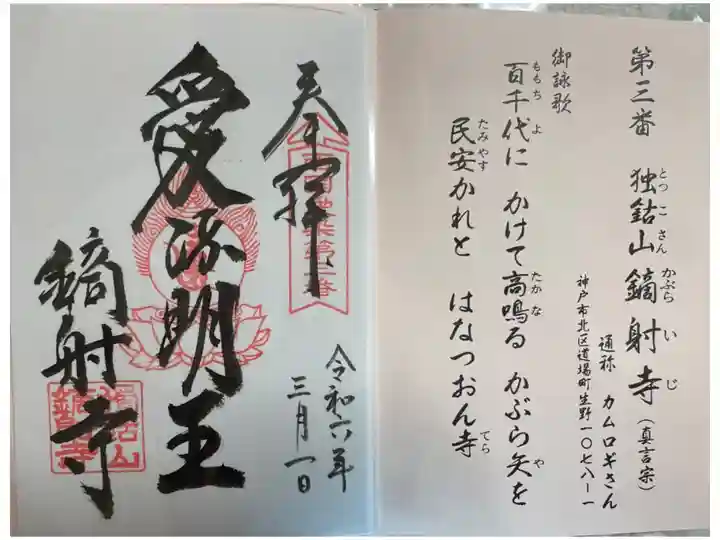 第三番 独鈷山鏑射寺(真言宗)
とつこさんかぶらいじ
通称 カムロギさん
神戸市北区道場町生野一〇七八ー一
御詠歌
百千代に かけて高鳴る かぶら矢を
ももちよ たかな や
民安かれと はなつおん寺
たみやす てら
奉拝
令和六年
三月一日
愛染明王
鏑射寺
独鈷山
鏑射寺